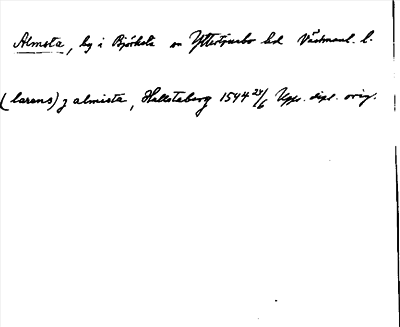 Almsta, by i Björksta sn Yttertjurbo hd Västmanl. l.
(larens) j almista, Hallstaberg 1544 24/6 Upps. dipl. orig.